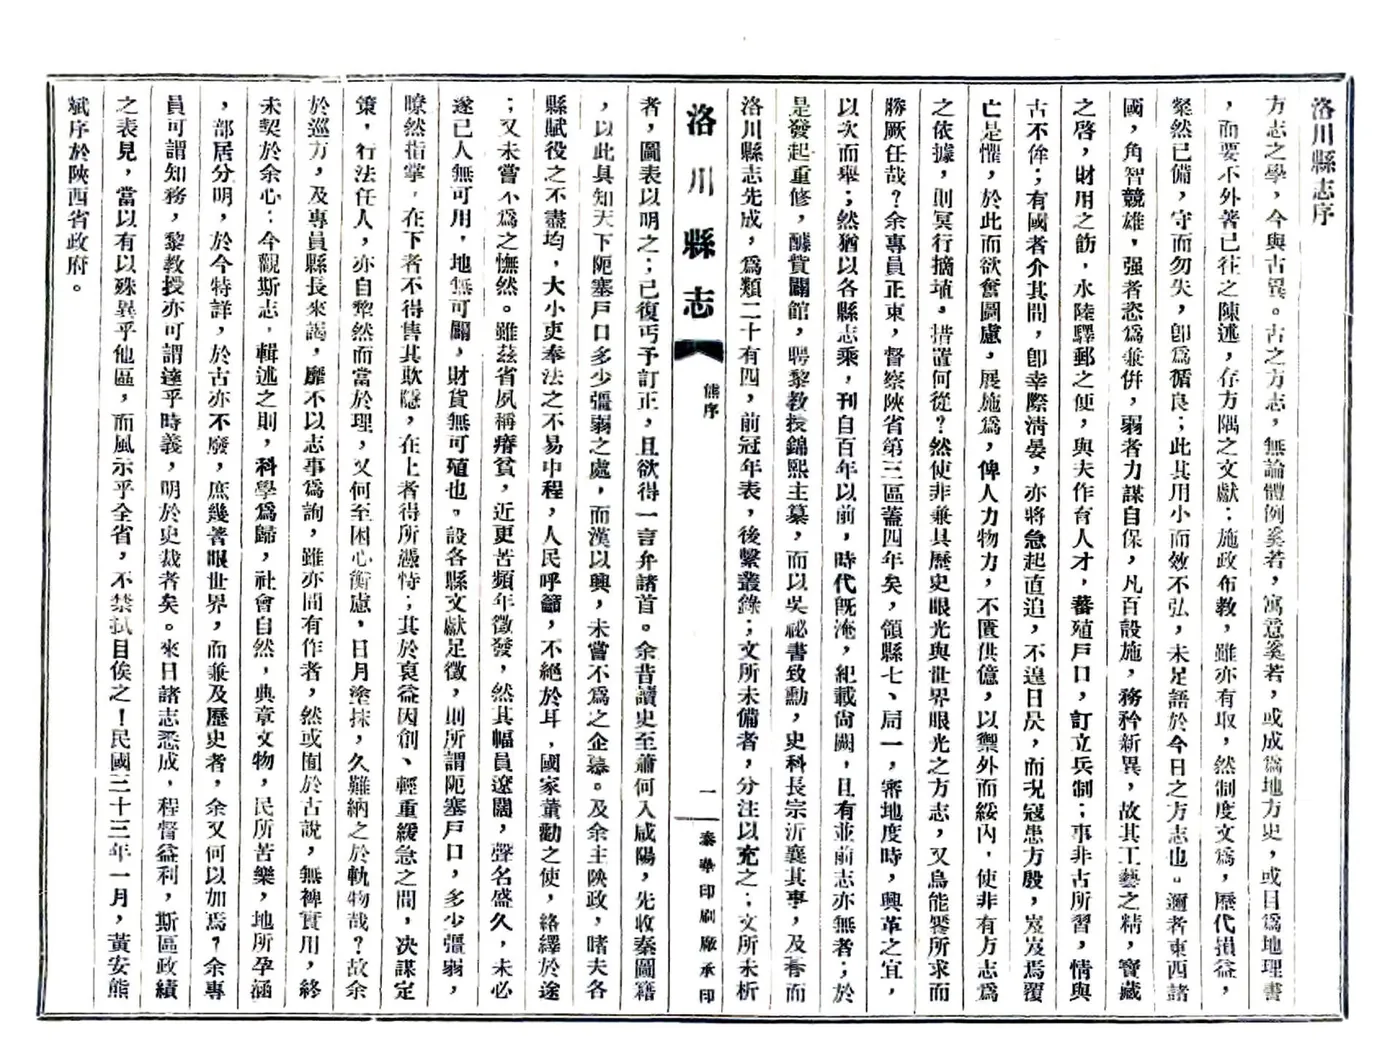 洛川縣志序
方志之學，今與古異。古之方志，無論體例奚若，寓意奚若，或成爲地方史，或目爲地理書
，而要不外著已往之陳述，存方隅之文獻；施政布教，雖亦有取，然制度文爲，歷代損益，
粲然已備，守而勿失，卽爲循良；此其用小而效不弘，未足語於今日之方志也。邇者東西諸
國，角智競雄，强者恣爲兼併，弱者力謀自保，凡百設施，務矜新異，故其工藝之精，寶藏
之啓，財用之飭，水陸驛郵之便，與夫作育人才，蕃殖戶口，訂立兵制；事非古所習，情與
古不侔；有國者介其間，卽幸際清晏，亦將急起直追，不遑日昃，而况寇患方殷，岌岌焉覆
亡是懼，於此而欲奮圖慮，展施爲，俾人力物力，不匱供億，以禦外而綏內，使非有方志爲
之依據，則冥行擿埴，措置何從？然使非兼具歷史眼光與世界眼光之方志，又烏能饜所求而
勝厥任哉？余專員正東，督察陝省第三區蓋四年矣，領縣七、局一，審地度時，興革之宜，
以次而舉；然猶以各縣志乘，刊自百年以前，時代旣淹，紀載尙闕，且有並前志亦無者；於
是發起重修，醵貲闢館，聘黎教授錦熙主纂，而以吳祕書致勳，史科長宗沂襄其事，及朞而
洛川縣志先成，爲類二十有四，前冠年表，後繫叢錄；文所未備者，分注以充之；文所未析
洛川縣志
熊序
一
泰華印刷廠承印
者，圖表以明之；已復丐予訂正，且欲得一言弁諸首。余昔讀史至蕭何入咸陽，先收秦圖籍
，以此具知天下阨塞戶口多少彊弱之處，而漢以興，未嘗不爲之企慕。及余主陝政，嗜夫各
縣賦役之不盡均，大小吏奉法之不易中程，人民呼籲，不絕於耳，國家董勸之使，絡繹於途
；又未嘗不爲之憮然。雖茲省夙稱瘠貧，近更苦頻年徵發，然其幅員遼闊，聲名盛久，未必
遂已人無可用，地無可闢，財貨無可殖也。設各縣文獻足徵，則所謂阨塞戶口，多少彊弱，
瞭然指掌，在下者不得售其欺隱，在上者得所憑恃；其於裒益因創、輕重緩急之間，决謀定
策，行法任人，亦自犂然而當於理，又何至困心衡慮，日月塗抹，久難納之於軌物哉？故余
於巡方，及專員縣長來謁，靡不以志事爲詢，雖亦間有作者，然或囿於古說，無裨實用，終
未契於余心；今觀斯志，輯述之則，科學爲歸，社會自然，典章文物，民所苦樂，地所孕涵
，部居分明，於今特詳，於古亦不廢，庶幾著眼世界，而兼及歷史者，余又何以加焉？余專
員可謂知務，黎教授亦可謂達乎時義，明於史裁者矣。來日諸志悉成，程督益利，斯區政績
之表見，當以有以殊異乎他區，而風示乎全省，不禁拭目俟之！民國三十三年一月，黃安熊
斌序於陝西省政府。